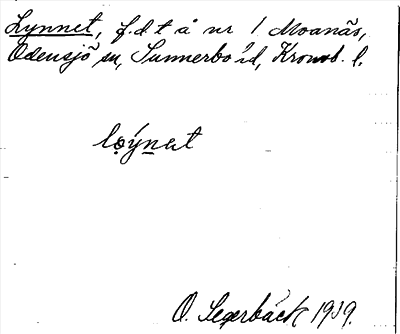 Lynnet, f.d t å nr 1 Moanäs,
Odensjö sn, Sunnerbo hd, Kronob. l.
O. Segerbäck 1939.